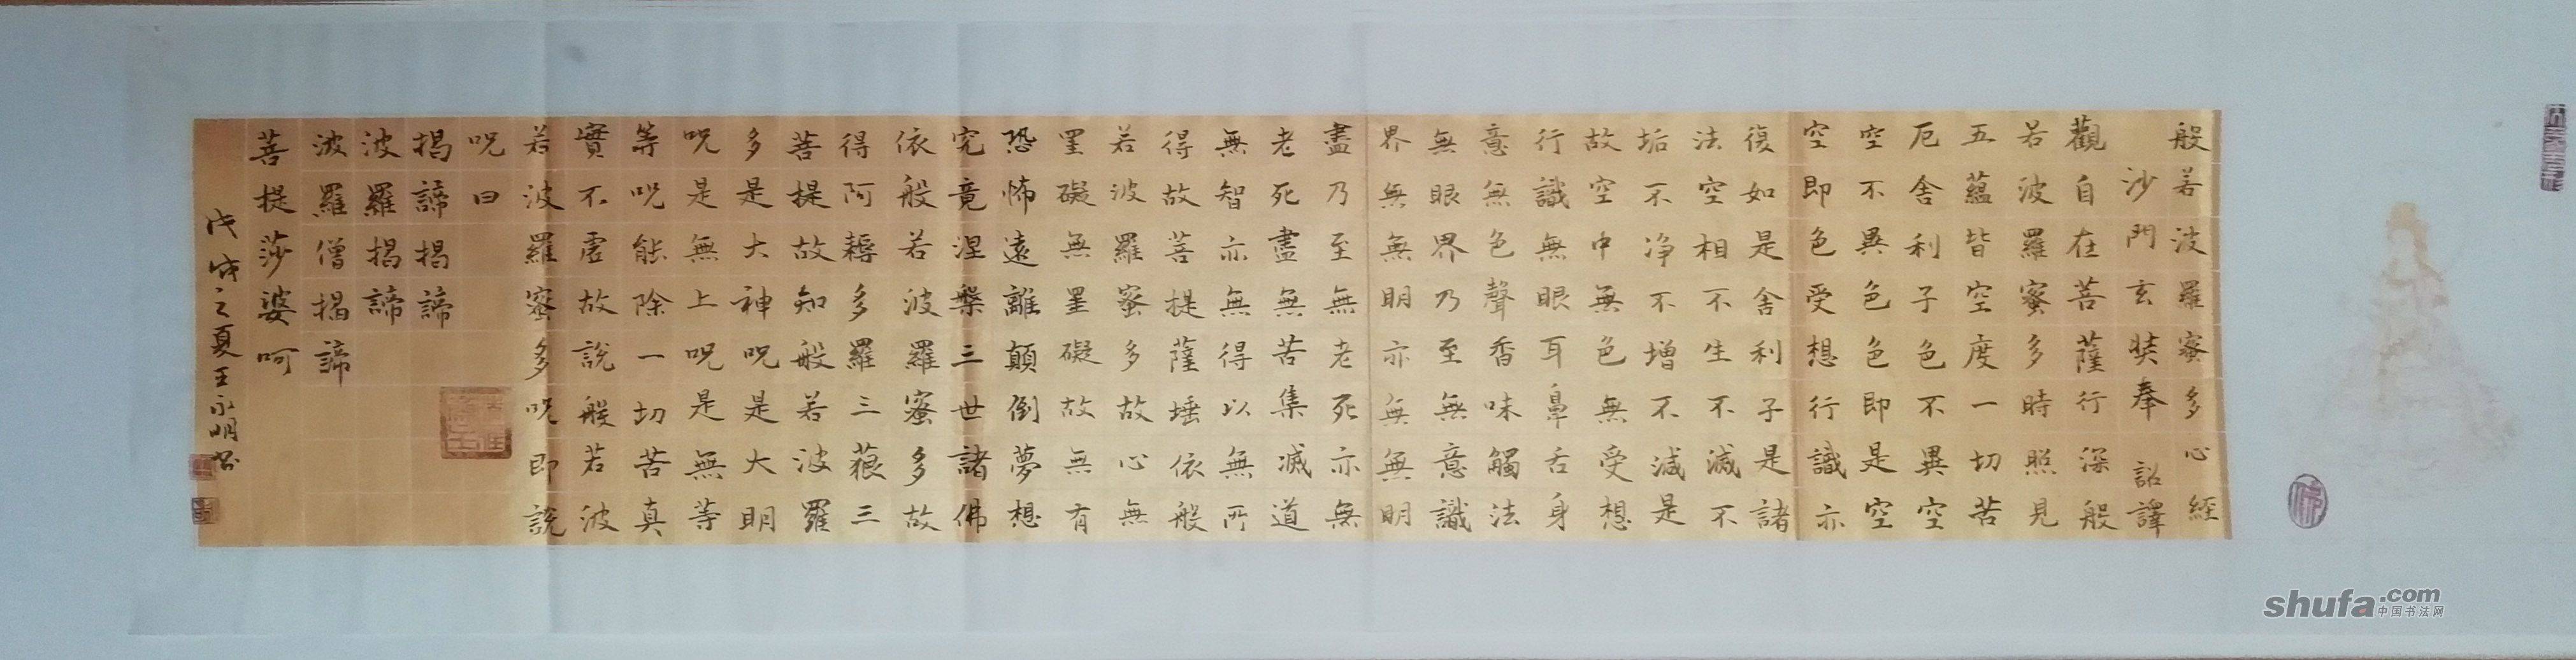 般若波羅蜜多心經
沙門玄奘奉 詔譯
觀自在菩薩行深般
若波羅蜜多時照見
五蘊皆空度一切苦
厄舍利子色不異空
空不異色色即是空
空即色受想行識亦
復如是舍利子是諸
法空相不生不滅不
垢不净不增不減是
故空中無色無受想
行識無眼耳鼻舌身
意無色聲香味觸法
無眼界乃至無意識
界無無明亦無無明
盡乃至無老死亦無
老死盡無苦集滅道
無智亦無得以無所
得故菩提薩埵依般
若波羅蜜多故心無
罣礙無罣礙故無有
恐怖遠離顛倒夢想
究竟涅槃三世諸佛
依般若波羅蜜多故
得阿耨多羅三藐三
菩提故知般若波羅
多是大神呪是大明
呪是無上呪是無等
等呪能除一切苦真
實不虛故說般若波
若波羅蜜多呪即說
呪曰
揭諦揭諦
波羅揭諦
波羅僧揭諦
菩提莎婆呵
戊戌之夏王永明書
佛
shufa.com
中国书法网